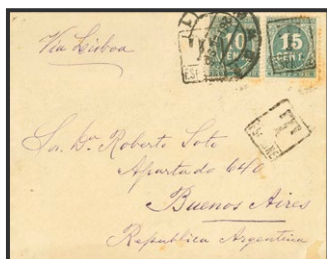 Via Lisboa
10
15
CENT.
Sor. Dn Roberto Soto
Apartado 640
Buenos Aires
Republica Argentina